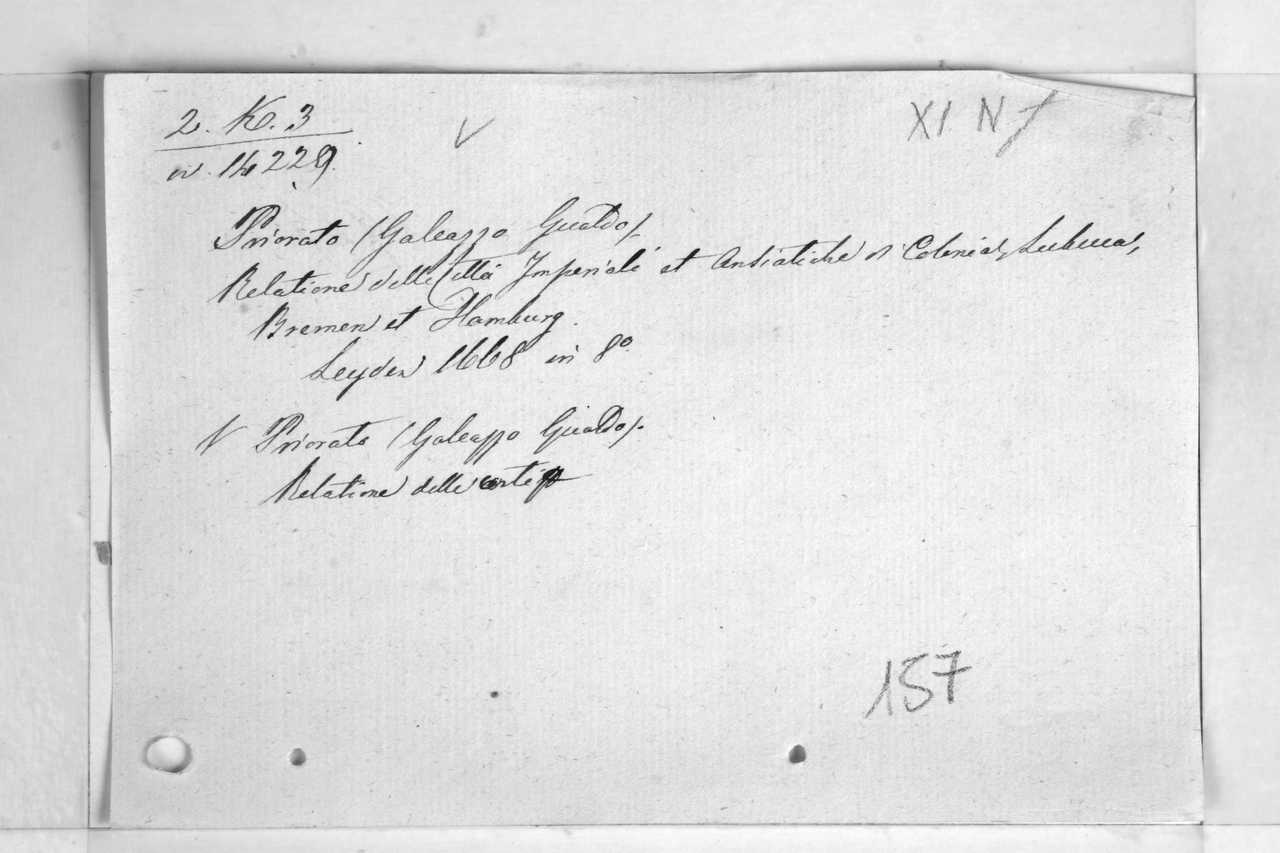 2. K. 3
n. 14229.
XI N f
Priorato (Galeazzo Gualdo).
Relatione delle Città Imperiali et Ansiatiche di Colonia, Lubeca,
Bremen et Hamburg.
Leyden 1668 in 8º
N Priorato (Galeazzo Gualdo).
Relatione delle
157